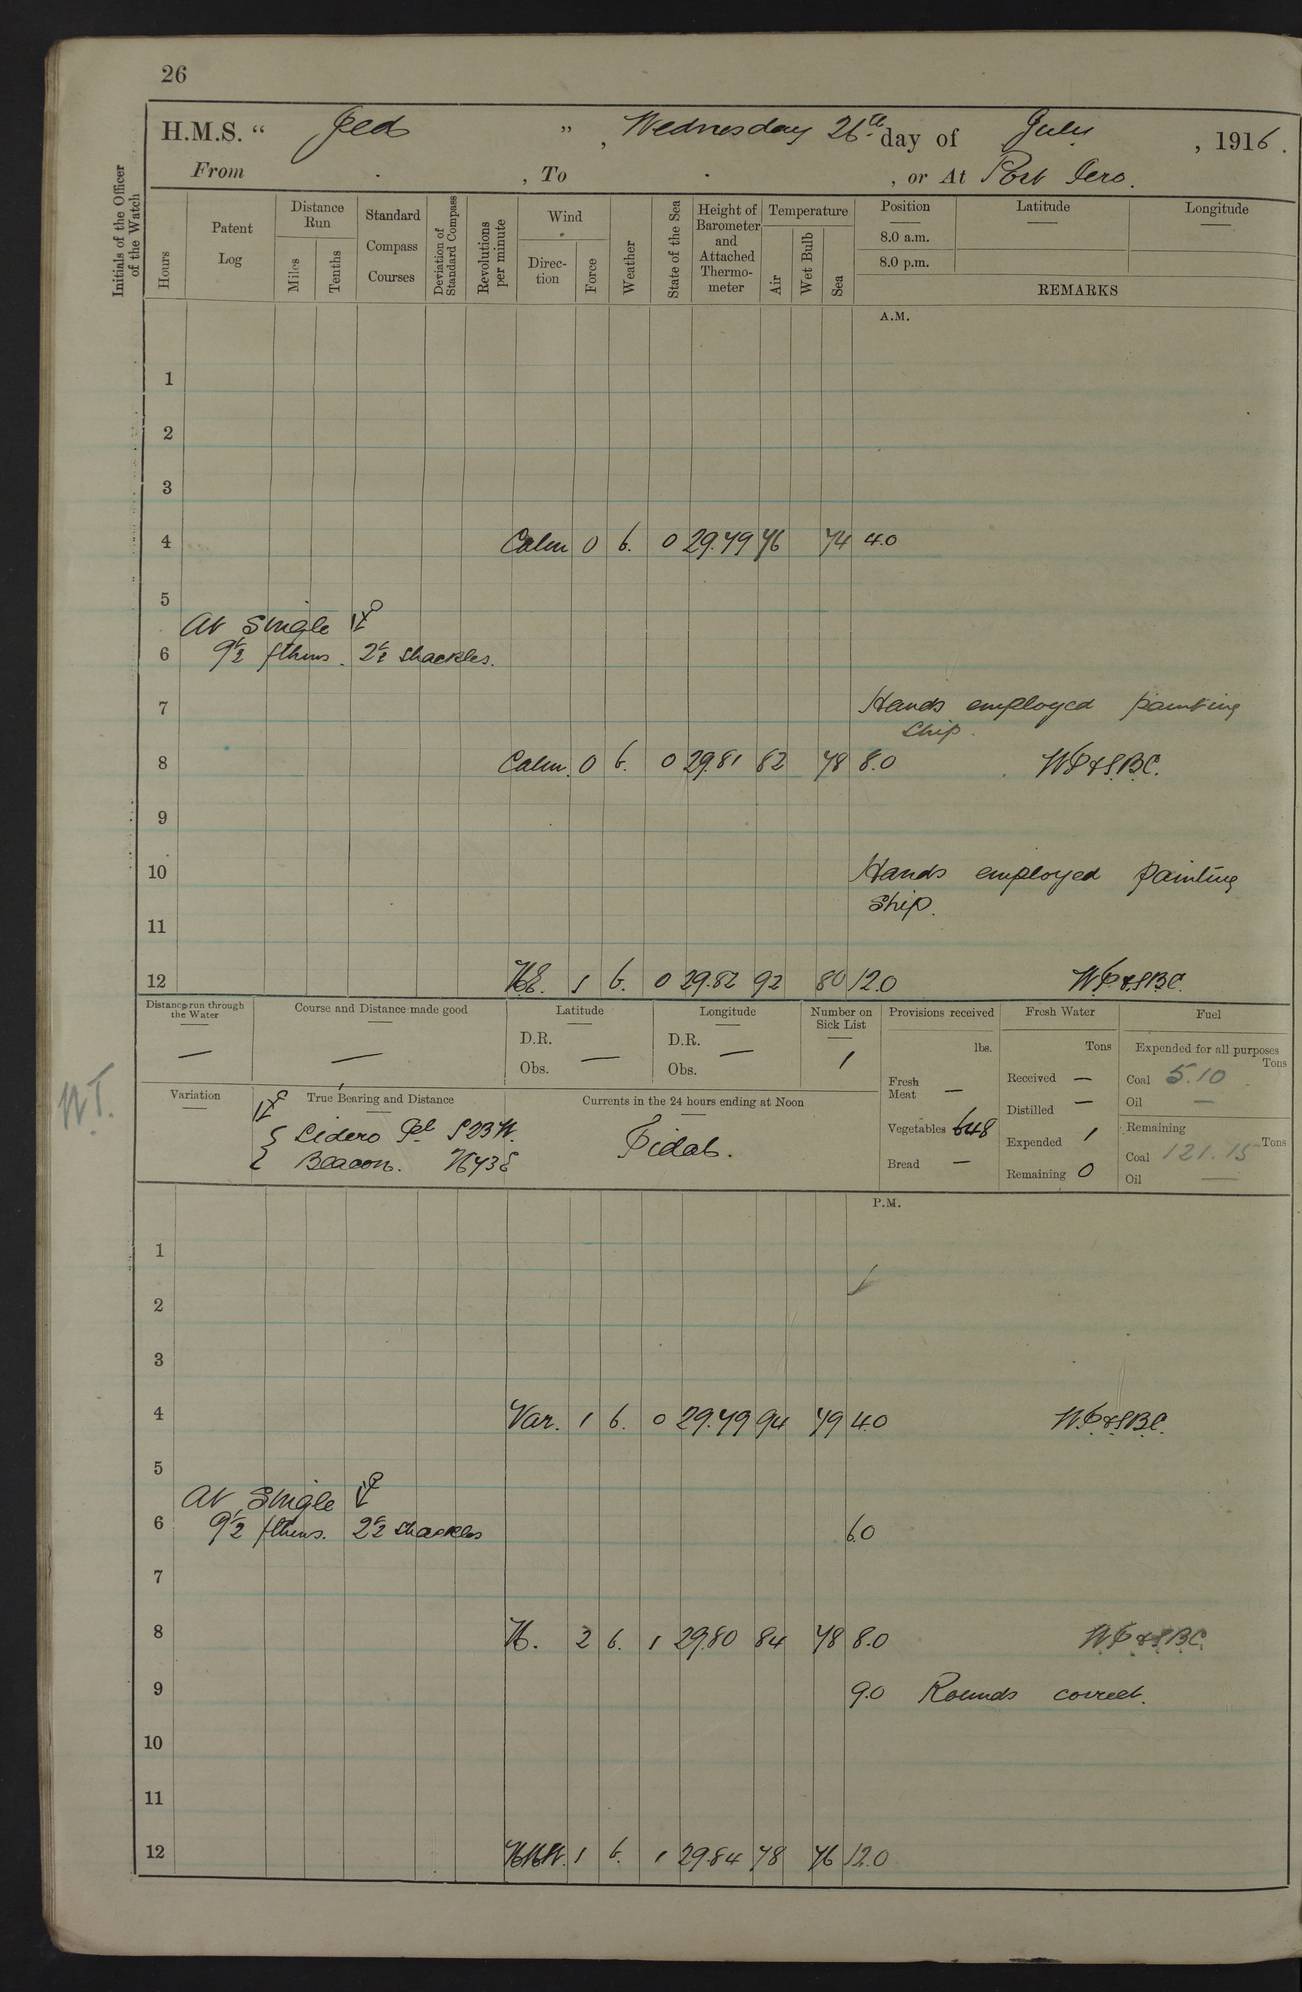 26
H.M.S. " Jed ", Wednesday 26th day of July, 1916.
From . , To . , or At Port Iero.
Initials of the Officer of the Watch
Hours
Patent Log
Distance Run
Miles
Tenths
Standard Compass Courses
Deviation of Standard Compass
Revolutions per minute
Wind
Direction
Force
Weather
State of the Sea
Height of Barometer and Attached Thermometer
Temperature
Air
Wet Bulb
Sea
Position
8.0 a.m.
8.0 p.m.
Latitude
Longitude
REMARKS
A.M.
1
2
3
4 Calm 0 b. 0 29.79 76 74 4.0
5
At Single
6 9½ fthms. 2½ shackles.
7 Hands employed painting
ship.
8 Calm. 0 b. 0 29.81 82 78 8.0 WP&SBC.
9
10 Hands employed painting
ship.
11
12 NE. 1 b. 0 29.82 92 80 12.0 WP&SBC.
Distance run through the Water
—
Course and Distance made good
—
Latitude
D.R.
Obs. —
Longitude
D.R.
Obs. —
Number on Sick List
1
Provisions received
lbs.
Fresh Meat —
Vegetables 648
Bread —
Fresh Water
Tons
Received —
Distilled —
Expended 1
Remaining 0
Fuel
Expended for all purposes
Tons
Coal 5.10
Oil —
Remaining
Tons
Coal 121.15
Oil —
W.T.
Variation
True Bearing and Distance
Sidero Pt S23W.
Beacon. N73E
Currents in the 24 hours ending at Noon
Tidal.
P.M.
1
2
3
4 Var. 1 b. 0 29.79 94 79 4.0 W.P&SBC.
5
At Single
6 9½ fthms. 2½ shackles 6.0
7
8 N. 2 b. 1 29.80 84 78 8.0 W.P&SBC.
9 9.0 Rounds correct.
10
11
12 NNW. 1 b. 1 29.84 78 76 12.0